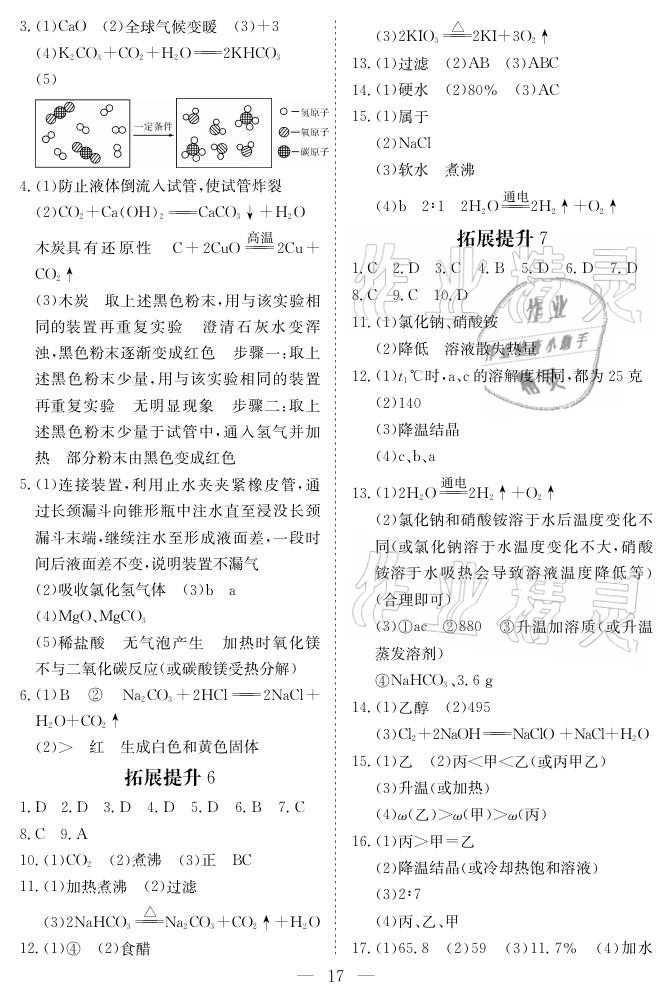 3. (1)CaO　(2)全球气候变暖　(3)+3
(4)K₂CO₃+CO₂+H₂O══2KHCO₃
(5)
一定条件
—氢原子
—氧原子
—碳原子
4. (1)防止液体倒流入试管,使试管炸裂
(2)CO₂+Ca(OH)₂══CaCO₃↓+H₂O
木炭具有还原性　C+2CuO 高温══ 2Cu+
CO₂↑
(3)木炭　取上述黑色粉末,用与该实验相
同的装置再重复实验　澄清石灰水变浑
浊,黑色粉末逐渐变成红色　步骤一:取上
述黑色粉末少量,用与该实验相同的装置
再重复实验　无明显现象　步骤二:取上
述黑色粉末少量于试管中,通入氢气并加
热　部分粉末由黑色变成红色
5. (1)连接装置,利用止水夹夹紧橡皮管,通
过长颈漏斗向锥形瓶中注水直至浸没长颈
漏斗末端,继续注水至形成液面差,一段时
间后液面差不变,说明装置不漏气
(2)吸收氯化氢气体　(3)b　a
(4)MgO、MgCO₃
(5)稀盐酸　无气泡产生　加热时氧化镁
不与二氧化碳反应(或碳酸镁受热分解)
6. (1)B　②　Na₂CO₃+2HCl══2NaCl+
H₂O+CO₂↑
(2)>　红　生成白色和黄色固体
拓展提升 6
1. D　2. D　3. D　4. D　5. D　6. B　7. C
8. C　9. A
10. (1)CO₂　(2)煮沸　(3)正　BC
11. (1)加热煮沸　(2)过滤
(3)2NaHCO₃ △══ Na₂CO₃+CO₂↑+H₂O
12. (1)④　(2)食醋
(3)2KIO₃ △══ 2KI+3O₂↑
13. (1)过滤　(2)AB　(3)ABC
14. (1)硬水　(2)80%　(3)AC
15. (1)属于
(2)NaCl
(3)软水　煮沸
(4)b　2∶1　2H₂O 通电══ 2H₂↑+O₂↑
拓展提升 7
1. C　2. D　3. C　4. B　5. D　6. D　7. D
8. C　9. C　10. D
11. (1)氯化钠、硝酸铵
(2)降低　溶液散失热量
12. (1)t₁℃时,a、c的溶解度相同,都为25克
(2)140
(3)降温结晶
(4)c、b、a
13. (1)2H₂O 通电══ 2H₂↑+O₂↑
(2)氯化钠和硝酸铵溶于水后温度变化不
同(或氯化钠溶于水温度变化不大,硝酸
铵溶于水吸热会导致溶液温度降低等)
(合理即可)
(3)①ac　②880　③升温加溶质(或升温
蒸发溶剂)
④NaHCO₃、3.6 g
14. (1)乙醇　(2)495
(3)Cl₂+2NaOH══NaClO+NaCl+H₂O
15. (1)乙　(2)丙<甲<乙(或丙甲乙)
(3)升温(或加热)
(4)ω(乙)>ω(甲)>ω(丙)
16. (1)丙>甲=乙
(2)降温结晶(或冷却热饱和溶液)
(3)2∶7
(4)丙、乙、甲
17. (1)65.8　(2)59　(3)11.7%　(4)加水
— 17 —
作业精灵
作业精灵